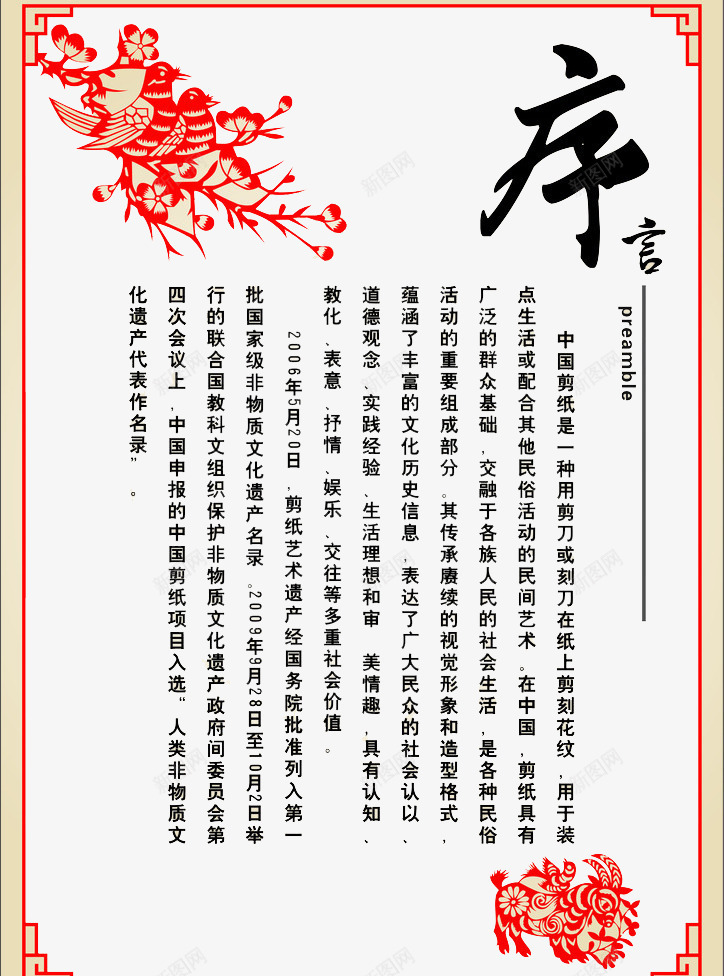 序
言
preamble
中国剪纸是一种用剪刀或刻刀在纸上剪刻花纹，用于装
点生活或配合其他民俗活动的民间艺术。在中国，剪纸具有
广泛的群众基础，交融于各族人民的社会生活，是各种民俗
活动的重要组成部分。其传承赓续的视觉形象和造型格式，
蕴涵了丰富的文化历史信息，表达了广大民众的社会认以、
道德观念、实践经验、生活理想和审 美情趣，具有认知、
教化、表意、抒情、娱乐、交往等多重社会价值。
2006年5月20日，剪纸艺术遗产经国务院批准列入第一
批国家级非物质文化遗产名录。2009年9月28日至10月2日举
行的联合国教科文组织保护非物质文化遗产政府间委员会第
四次会议上，中国申报的中国剪纸项目入选“人类非物质文
化遗产代表作名录”。
新图网
新图网
新图网
新图网
新图网
新图网
新图网
新图网
新图网
新图网
新图网
新图网
新图网